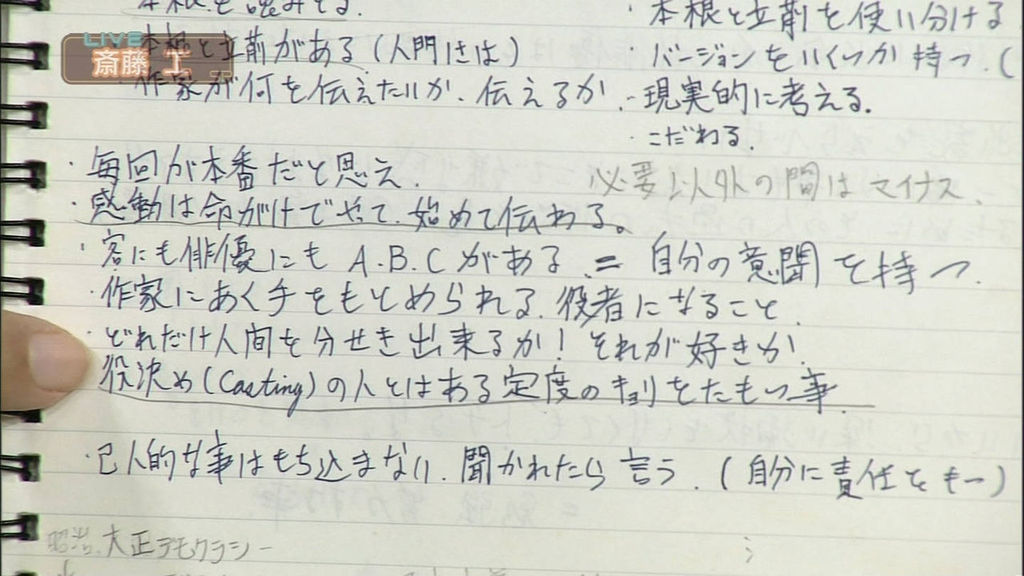 本根と立前を使い分ける
LIVE
斎藤 工
本根と立前がある（人門には）
・バージョンをいくつか持つ.（
作家が何を伝えたいか、伝えるか.
・現実的に考える.
・こだわる.
・毎回が本番だと思え.
必要以外の間はマイナス.
・感動は命がけでやて、始めて伝わる。
・客にも俳優にも A.B.Cがある. = 自分の意聞を持つ.
・作家にあく手をもとめられる.役者になること.
・どれだけ人間を分せき出来るか！それが好きか.
・役決め(Casting)の人とはある定度のキョリをたもつ事.
・己人的な事はもち込まない.聞かれたら言う.（自分に責任をもつ）
昭治.大正デモクラシー